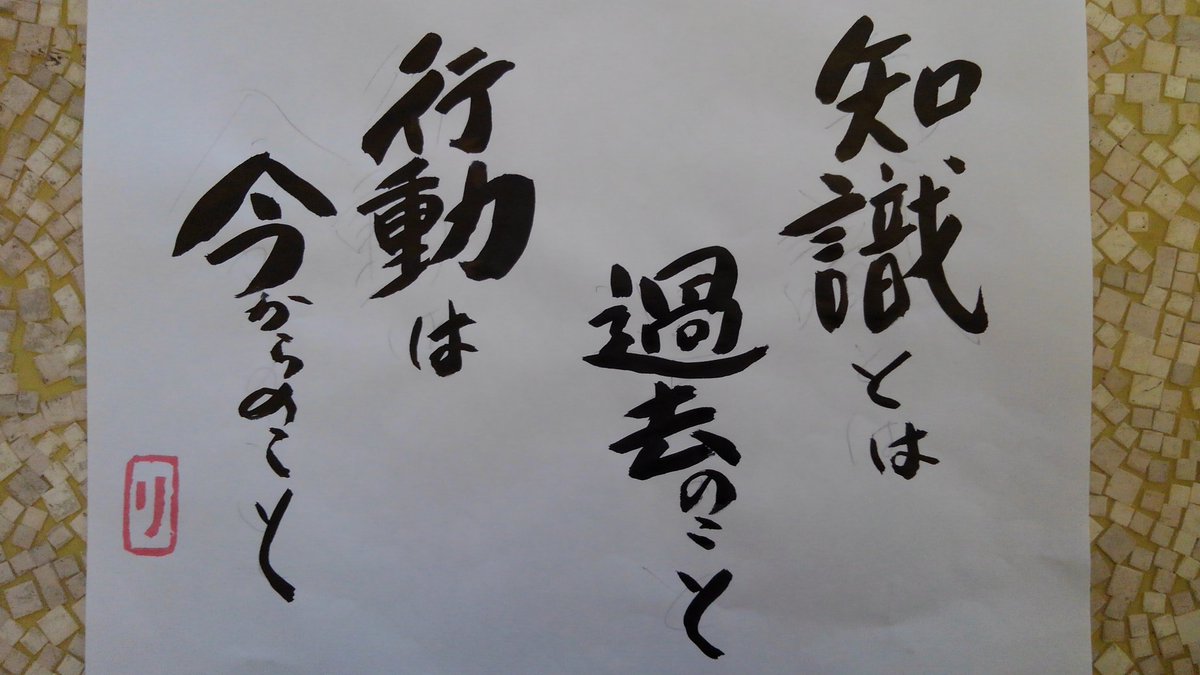 知識とは
過去のこと
行動は
今からのこと
リ